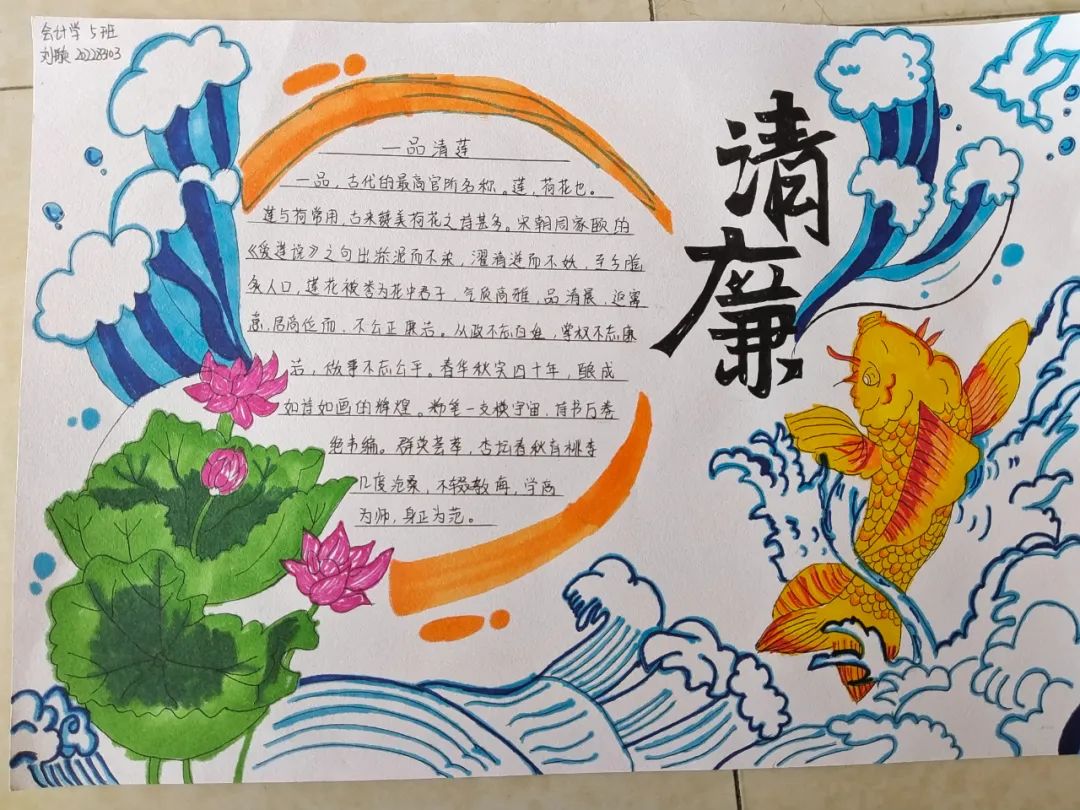 会计学 5班
刘颖 20228303
一品清莲
一品，古代的最高官所名称。莲，荷花也。
莲与荷常用，古来赞美荷花之诗甚多。宋朝周家颐的
《爱莲说》之句出淤泥而不染，濯清涟而不妖，至今脍
炙人口，莲花被誉为花中君子，气质高雅，品清晨，返寓
意，居高位而，不公正廉洁。从政不忘百姓，掌权不忘廉
洁，做事不忘公平。春华秋实四十年，酿成
如诗如画的辉煌。粉笔一支横宇宙，诗书万卷
绝韦编。群英荟萃，杏坛春秋育桃李
几度沧桑，不辍教诲，学高
为师，身正为范。
清
廉